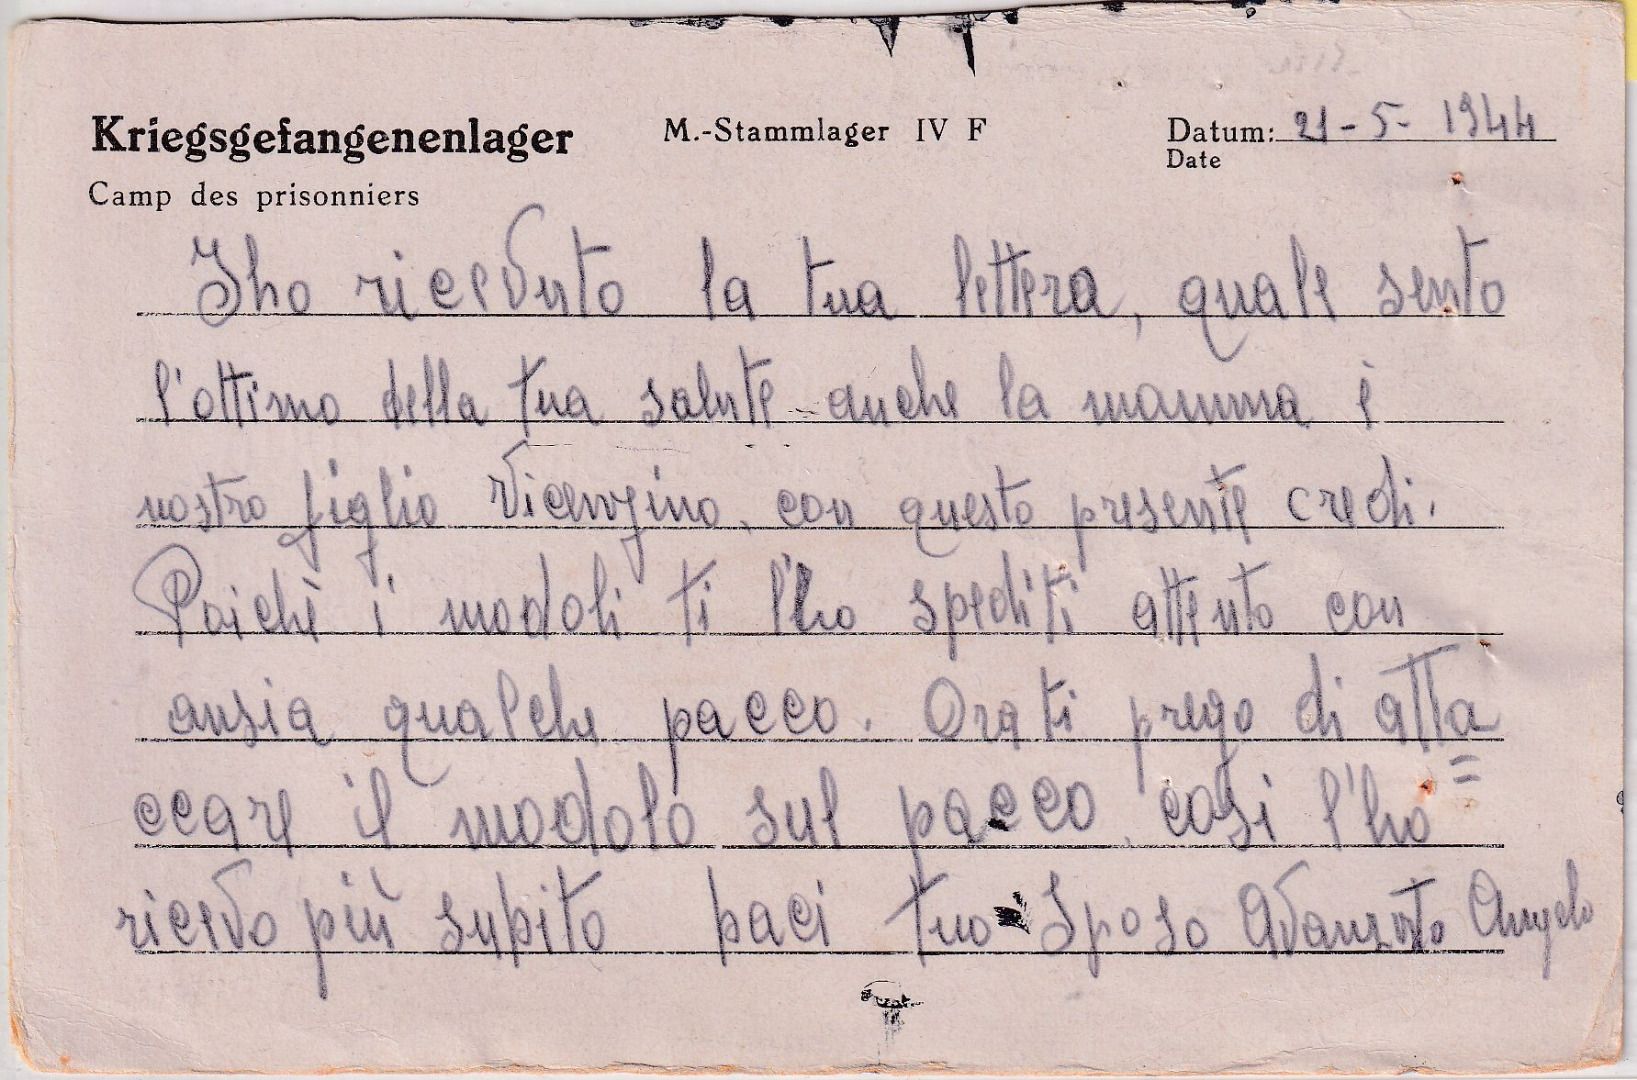 Kriegsgefangenenlager M.-Stammlager IV F Datum: 21-5-1944
Camp des prisonniers Date
Iho ricevuto la tua lettera, quale sento
l'ottimo della tua salute anche la mamma è
nostro figlio Vicenzino, con questo presente credi.
Poichè i modoli ti l'ho spediti attento con
ansia qualche pacco. Ora ti prego di atta=
ccare il modolo sul pacco, così l'ho
ricevo più supito paci tuo Sposo Angelo